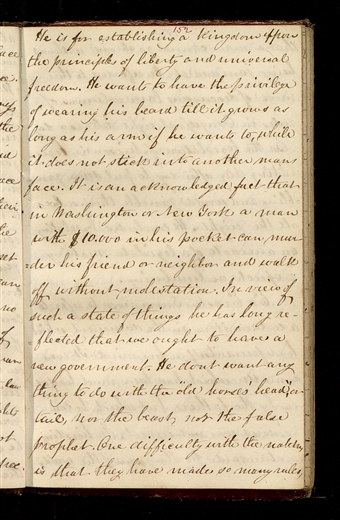 152
He is for establishing a Kingdom upon
the principles of liberty and universal
freedom. He wants to have the privilege
of wearing his beard till it grows as
long as his arm if he wants to, while
it does not stick into another mans
face. It is an acknowledged fact that
in Washington or New York a man
with $10.000 in his pocket can mur-
der his friend or neighbor and walk
off without molestation. In view of
such a state of things he has long re-
flected that we ought to have a
new government. He dont want any
thing to do with the "old horses' head" or
tail, nor the beast, nor the false
prophet. One difficulty with the nations
is that they have made so many rules